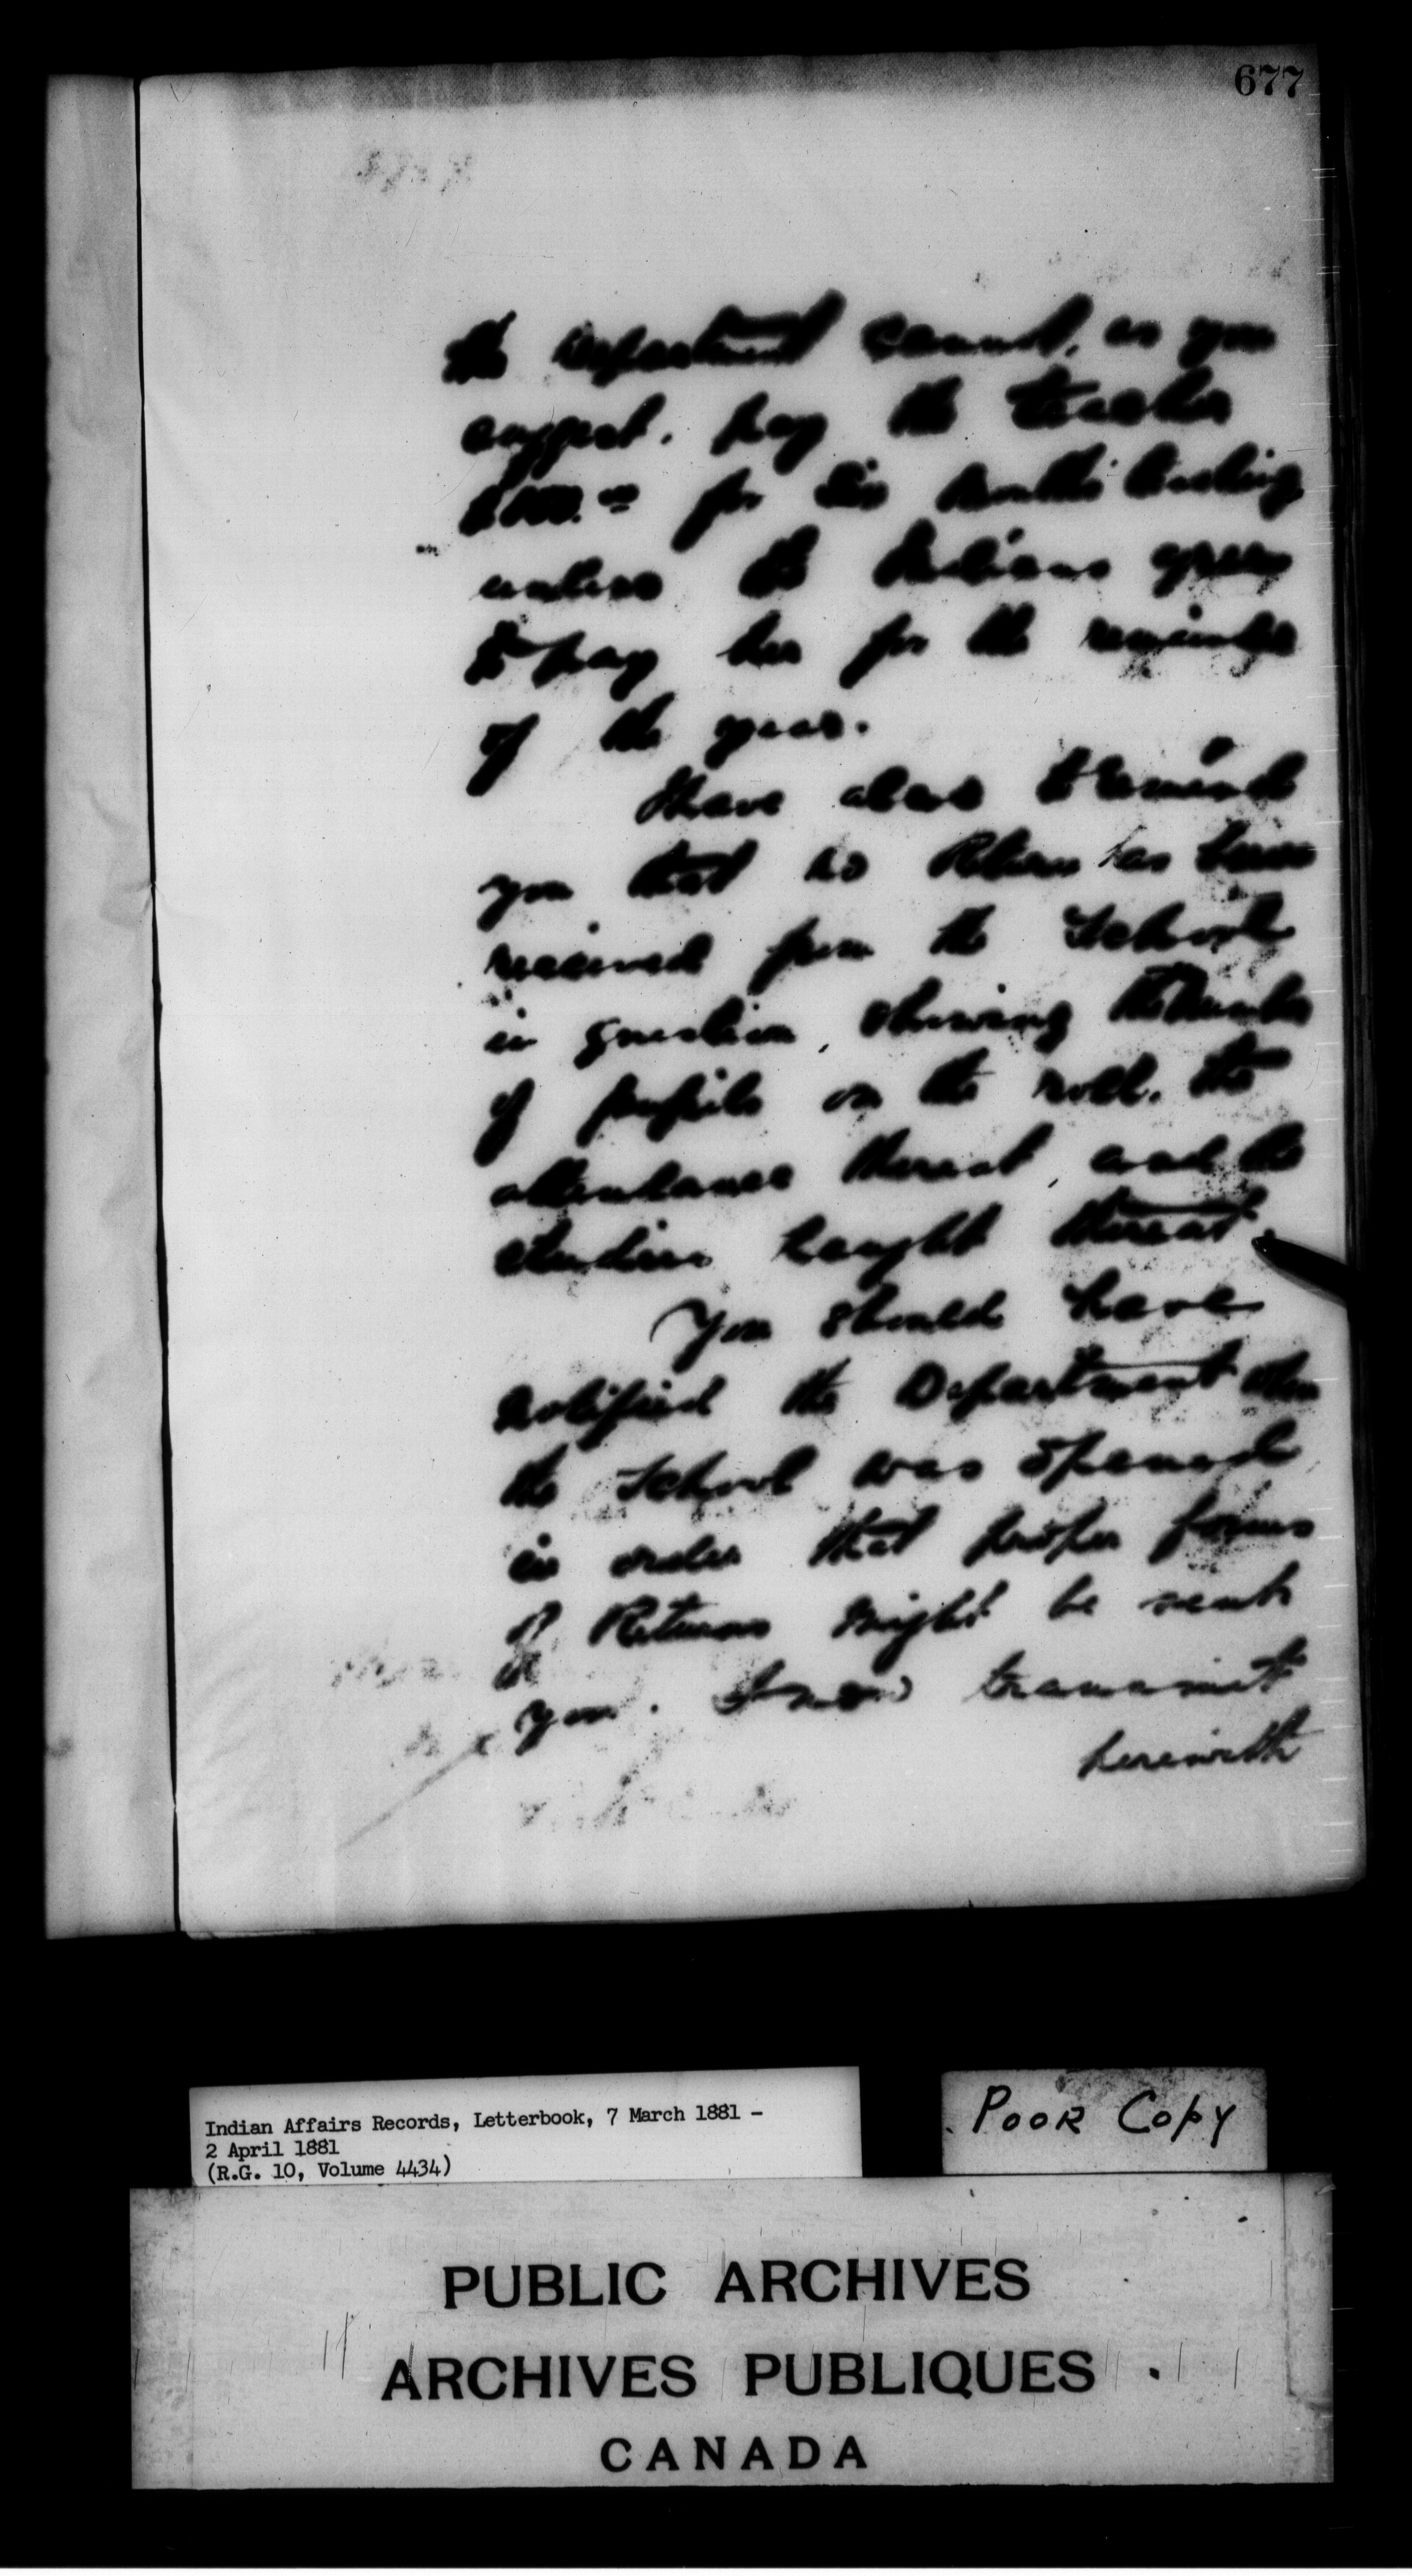 677
the Department cannot, as you
suggest, pay the teacher
for six months
unless the Indians agree
to pay her for the remainder
of the year.
I have also to remind
you that no Return has been
received from the School
in question, showing the number
of pupils on the roll, the
attendance thereat, and the
studies taught thereat.
You should have
notified the Department when
the School was opened
in order that proper forms
of Returns might be sent
you. I now transmit
herewith
Indian Affairs Records, Letterbook, 7 March 1881 -
2 April 1881
(R.G. 10, Volume 4434)
POOR COPY
PUBLIC ARCHIVES
ARCHIVES PUBLIQUES
CANADA